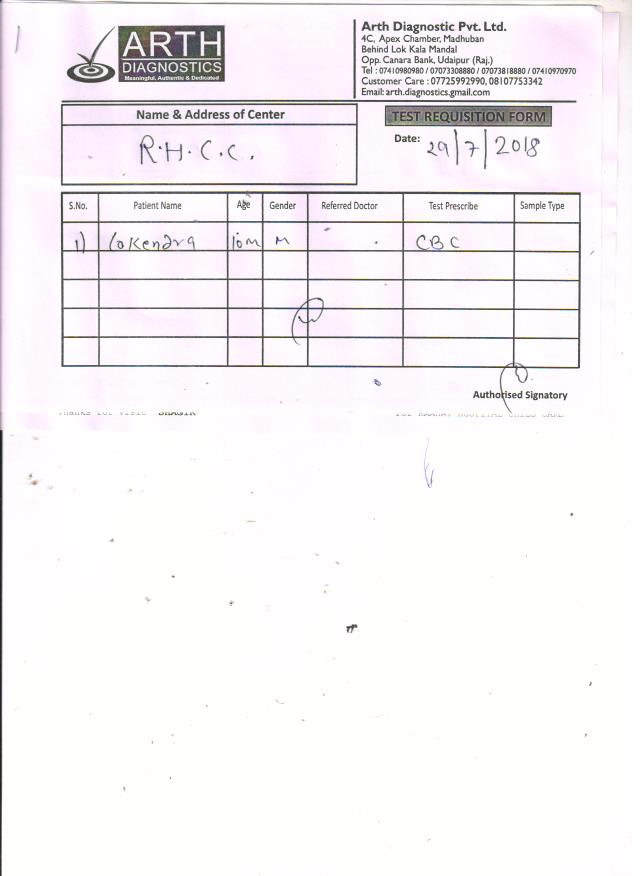 ARTH
DIAGNOSTICS
Meaningful, Authentic & Dedicated
Arth Diagnostic Pvt. Ltd.
4C, Apex Chamber, Madhuban
Behind Lok Kala Mandal
Opp. Canara Bank, Udaipur (Raj.)
Tel : 07410980980 / 07073308880 / 07073818880 / 07410970970
Customer Care : 07725992990, 08107753342
Email: arth.diagnostics.gmail.com
Name & Address of Center
R.H.C.C.
TEST REQUISITION FORM
Date: 29/7/2018
S.No. Patient Name Age Gender Referred Doctor Test Prescribe Sample Type
1) Lokendra 10M M CBC
Authorised Signatory